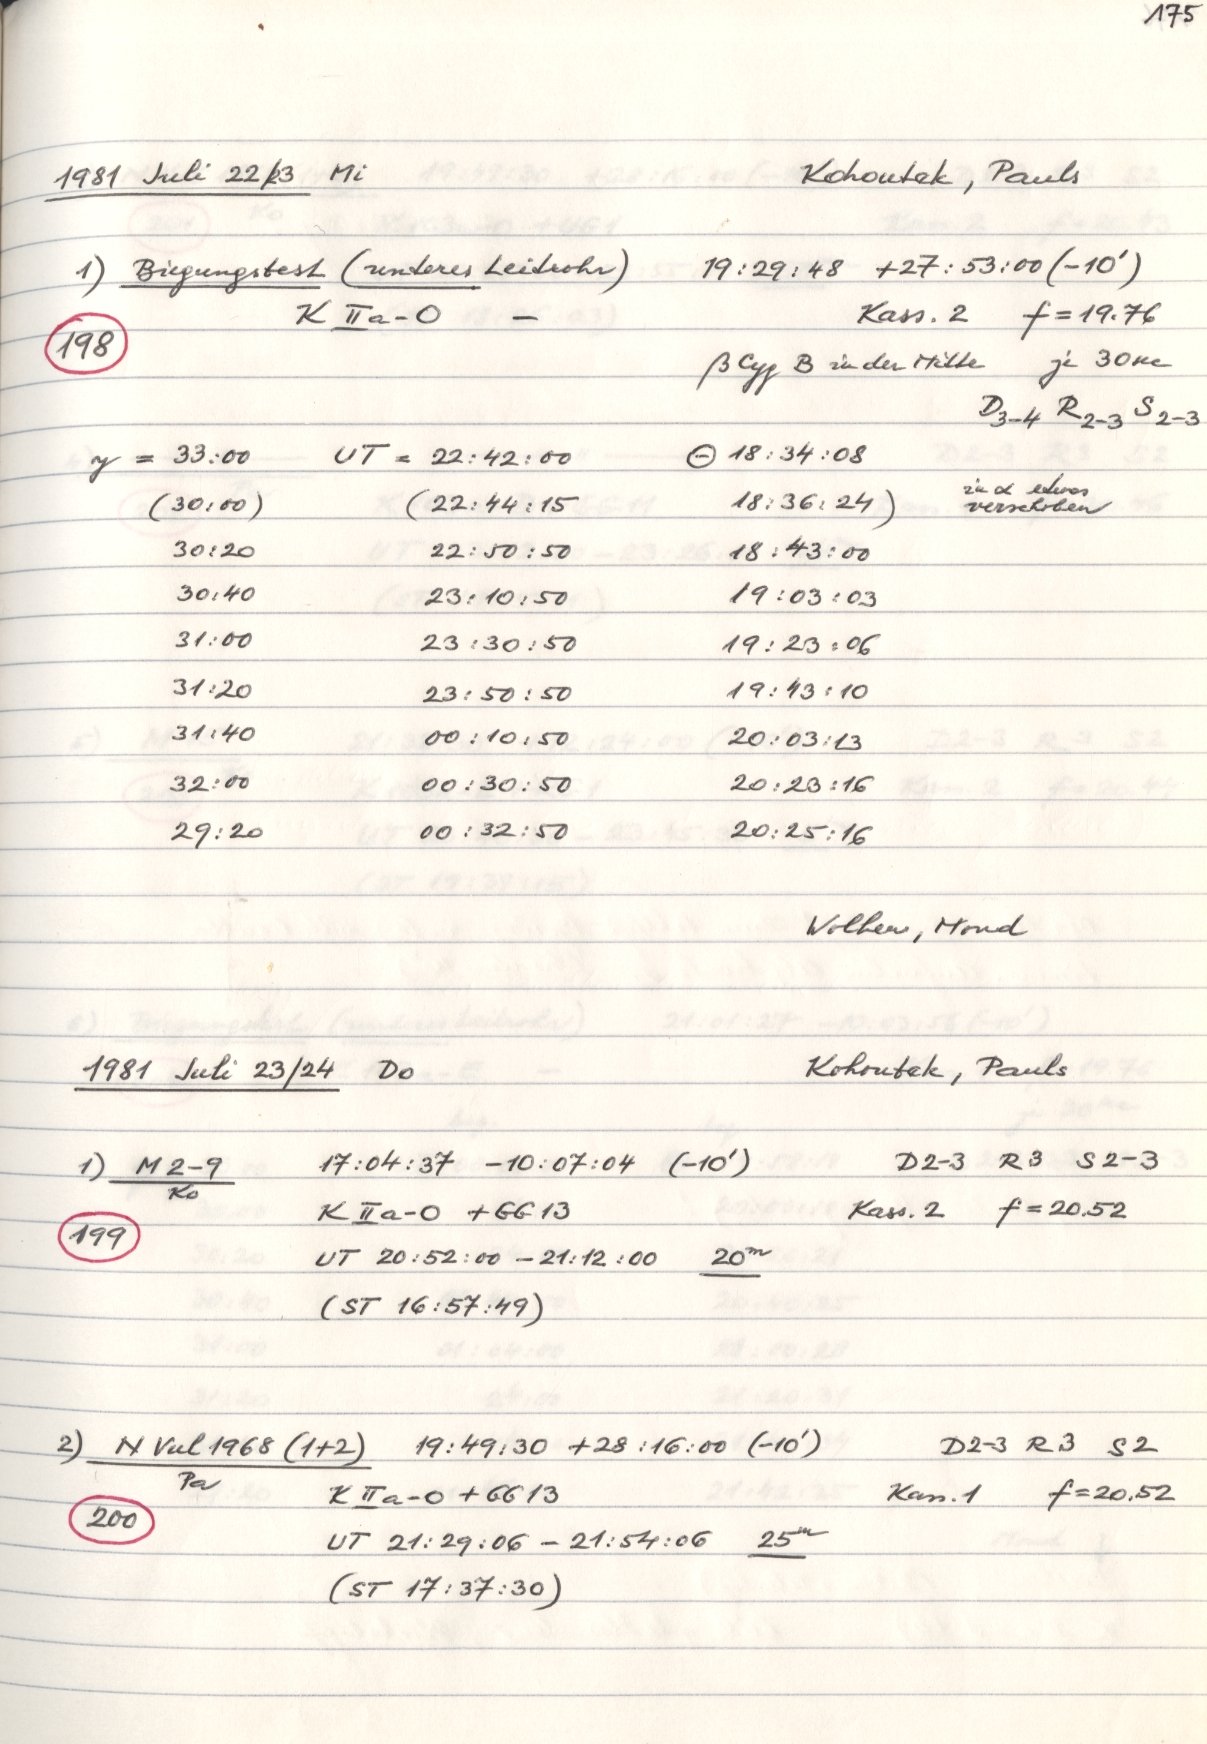 175
1981 Juli 22/23 Mi Kohoutek, Pauls
1) Biegungstest (unteres Leitrohr) 19:29:48 +27:53:00 (-10')
K IIa-O - Kass. 2 f=19.76
198
β Cyg B in der Mitte je 30sec
D3-4 R2-3 S2-3
y = 33:00 UT = 22:42:00 ⊖ 18:34:08
(30:00) (22:44:15 18:36:24) in α etwas verschoben
30:20 22:50:50 18:43:00
30:40 23:10:50 19:03:03
31:00 23:30:50 19:23:06
31:20 23:50:50 19:43:10
31:40 00:10:50 20:03:13
32:00 00:30:50 20:23:16
29:20 00:32:50 20:25:16
Wolken, Mond
1981 Juli 23/24 Do Kohoutek, Pauls
1) M 2-9 17:04:37 -10:07:04 (-10') D2-3 R3 S2-3
Ko
K IIa-O +GG13 Kass. 2 f=20.52
199
UT 20:52:00 - 21:12:00 20m
(ST 16:57:49)
2) N Vul 1968 (1+2) 19:49:30 +28:16:00 (-10') D2-3 R3 S2
Pa
K IIa-O +GG13 Kass. 1 f=20.52
200
UT 21:29:06 - 21:54:06 25m
(ST 17:37:30)